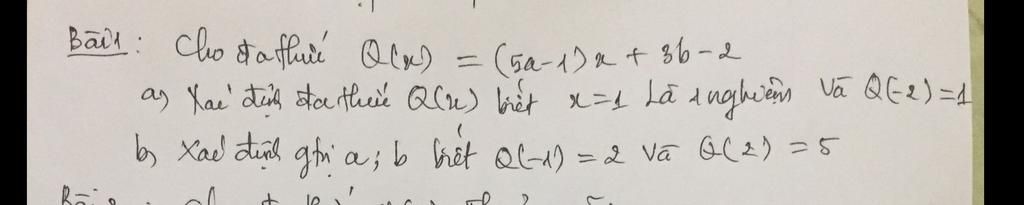 Bài 1 : Cho đa thức Q(x) = (5a-1)x + 3b-2
a) Xác định đa thức Q(x) biết x=1 là 1 nghiệm và Q(-2)=1
b) Xác định gtrị a; b biết Q(-1) = 2 và Q(2) = 5